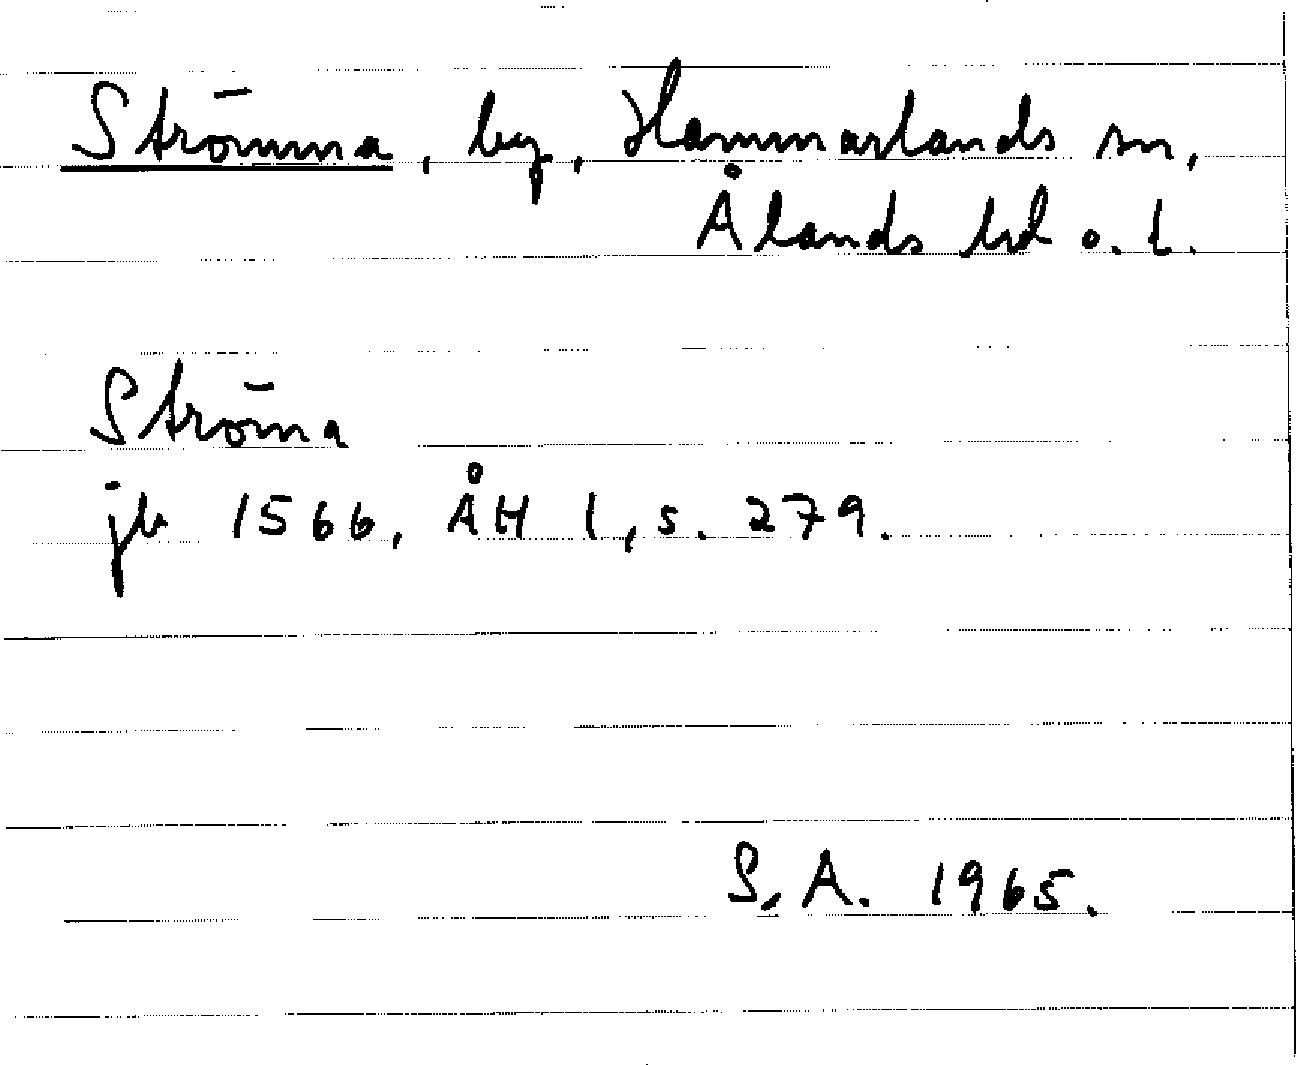 Strömma, by, Hammarlands sn,
Ålands hd o. l.
Ströma
jb 1566, ÅH 1, s. 279.
S. A. 1965.